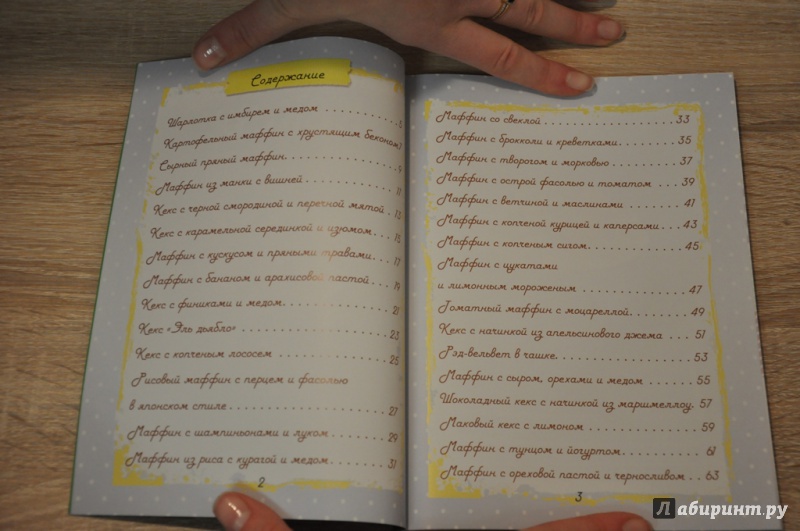 Содержание
Шарлотка с имбирем и медом . . . . . . . . . .
Картофельный маффин с хрустящим беконом
Сырный пряный маффин. . . . . . . . . . . . . . 9
Маффин из манки с вишней . . . . . . . . . . . . 11
Кекс с черной смородиной и перечной мятой . 13
Кекс с карамельной серединкой и изюмом. . . 15
Маффин с кускусом и пряными травами. . . . 17
Маффин с бананом и арахисовой пастой . . . 19
Кекс с финиками и медом. . . . . . . . . . . . . . 21
Кекс «Эль дьябло» . . . . . . . . . . . . . . . . . . . 23
Кекс с копченым лососем . . . . . . . . . . . . . . 25
Рисовый маффин с перцем и фасолью
в японском стиле . . . . . . . . . . . . . . . . . . . . 27
Маффин с шампиньонами и луком . . . . . . . . 29
Маффин из риса с курагой и медом. . . . . . . . 31
2
Маффин со свеклой . . . . . . . . . . . . . . . . . . 33
Маффин с брокколи и креветками. . . . . . . . 35
Маффин с творогом и морковью . . . . . . . . . 37
Маффин с острой фасолью и томатом . . . . 39
Маффин с ветчиной и маслинами . . . . . . . . 41
Маффин с копченой курицей и каперсами . . . 43
Маффин с копченым сигом. . . . . . . . . . . . . 45
Маффин с цукатами
и лимонным мороженым . . . . . . . . . . . . . . 47
Томатный маффин с моцареллой. . . . . . . . . 49
Кекс с начинкой из апельсинового джема . . . 51
Рэд-вельвет в чашке. . . . . . . . . . . . . . . . . 53
Маффин с сыром, орехами и медом . . . . . . . 55
Шоколадный кекс с начинкой из маршмеллоу. 57
Маковый кекс с лимоном . . . . . . . . . . . . . . 59
Маффин с тунцом и йогуртом. . . . . . . . . . . 61
Маффин с ореховой пастой и черносливом . . 63
3
Лабиринт.ру